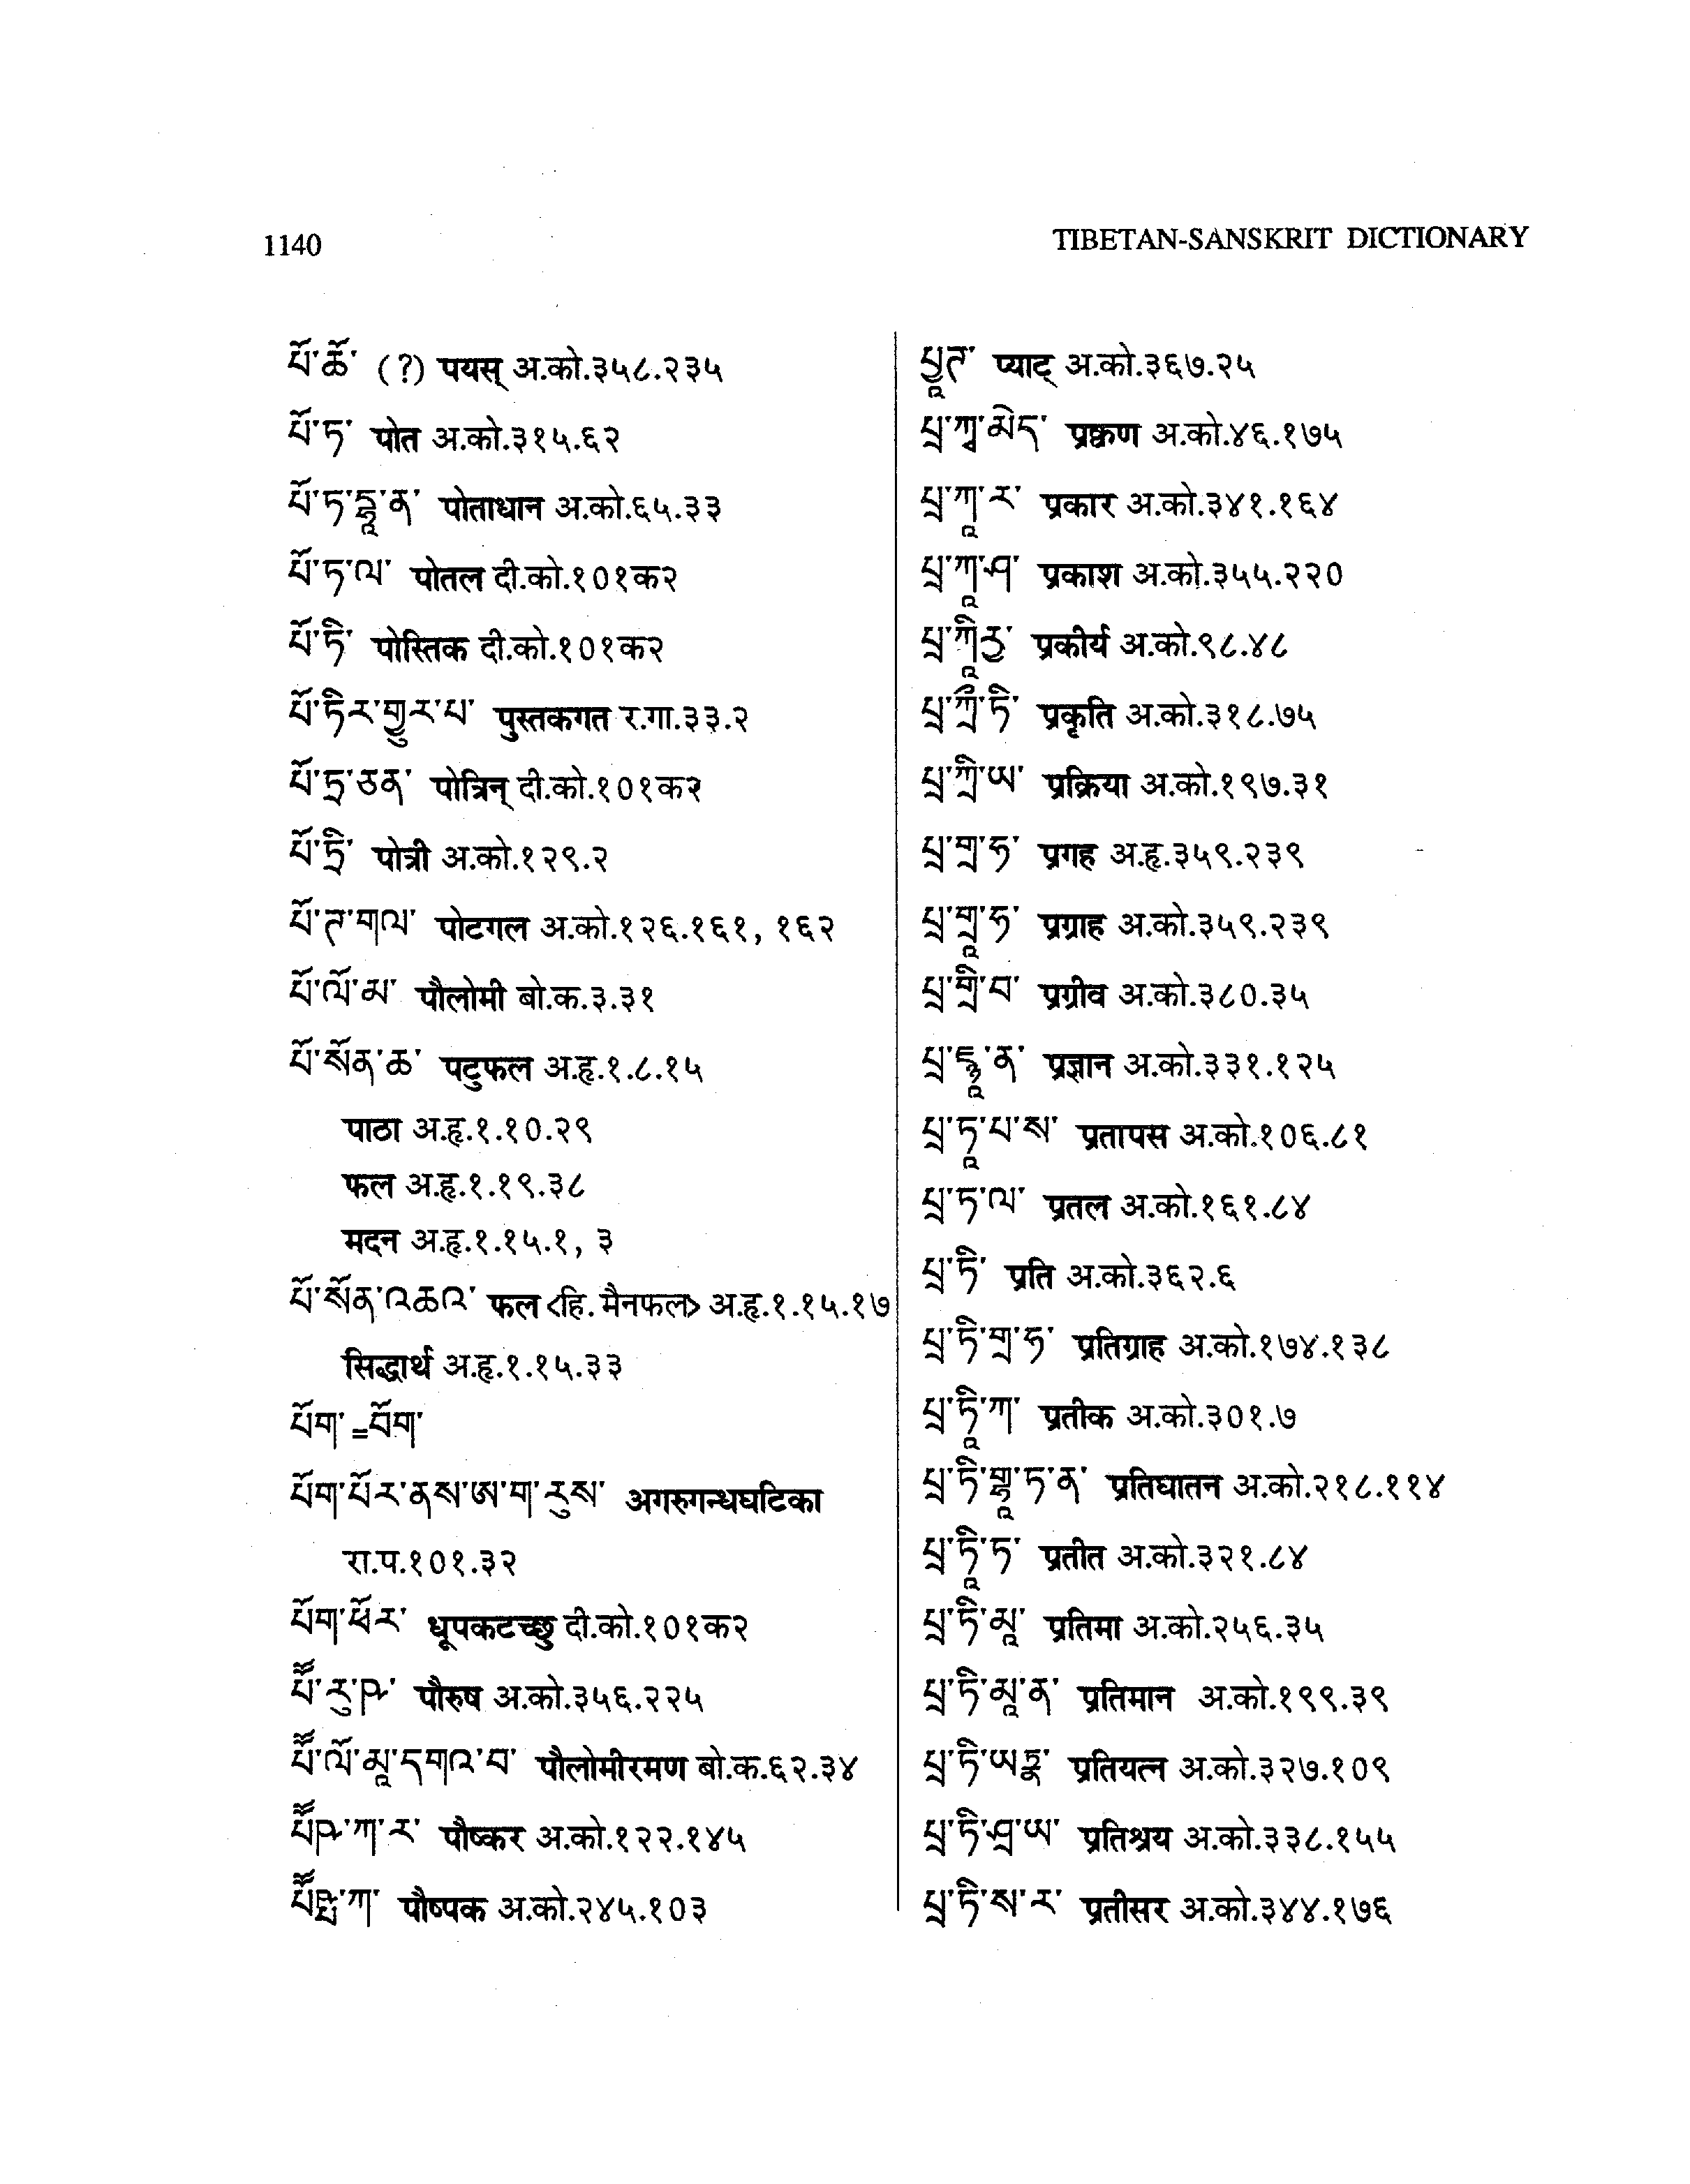 1140
TIBETAN-SANSKRIT DICTIONARY
པོ་ཚོ་ (?) पयस् अ.को.३५८.२३५
པོ་ཏ་ पोत अ.को.३१५.६२
པོ་ཏ་དྷཱ་ན་ पोताधान अ.को.६५.३३
པོ་ཏ་ལ་ पोतल दी.को.१०१क२
པོ་ཏི་ पोस्तिक दी.को.१०१क२
པོ་ཏིར་གྱུར་པ་ पुस्तकगत र.गा.३३.२
པོ་ཏྲ་ཅན་ पोत्रिन् दी.को.१०१क२
པོ་ཏྲི་ पोत्री अ.को.१२९.२
པོ་ཊ་གལ་ पोटगल अ.को.१२६.१६१, १६२
པོ་ལོ་མ་ पौलोमी बो.क.३.३१
པོ་སོན་ཆ་ पटुफल अ.हृ.१.८.१५
पाठा अ.हृ.१.१०.२९
फल अ.हृ.१.१९.३८
मदन अ.हृ.१.१५.१, ३
པོ་སོན་འཆའ་ फल <हि. मैनफल> अ.हृ.१.१५.१७
सिद्धार्थ अ.हृ.१.१५.३३
པོག་ =བོག་
པོག་པོར་ནས་ཨ་ག་རུས་ अगरुगन्धघटिका
रा.प.१०१.३२
པོག་ཕོར་ धूपकटच्छु दी.को.१०१क२
པཽ་རུ་ཥ་ पौरुष अ.को.३५६.२२५
པཽ་ལོ་མཱ་དགའ་བ་ पौलोमीरमण बो.क.६२.३४
པཽཥ་ཀ་ར་ पौष्कर अ.को.१२२.१४५
པཽཥྤ་ཀ་ पौष्पक अ.को.२४५.१०३
པྱཱཊ་ प्याट् अ.को.३६७.२५
པྲ་ཀྭ་མེད་ प्रक्वण अ.को.४६.१७५
པྲ་ཀཱ་ར་ प्रकार अ.को.३४१.१६४
པྲ་ཀཱ་ཤ་ प्रकाश अ.को.३५५.२२०
པྲ་ཀཱིརྱ་ प्रकीर्य अ.को.९८.४८
པྲ་ཀྲྀ་ཏི་ प्रकृति अ.को.३१८.७५
པྲ་ཀྲི་ཡ་ प्रक्रिया अ.को.१९७.३१
པྲ་གྲ་ཧ་ प्रगह अ.हृ.३५९.२३९
པྲ་གྲཱ་ཧ་ प्रग्राह अ.को.३५९.२३९
པྲ་གྲི་བ་ प्रग्रीव अ.को.३८०.३५
པྲ་ཛྙཱ་ན་ प्रज्ञान अ.को.३३१.१२५
པྲ་ཏཱ་པ་ས་ प्रतापस अ.को.१०६.८१
པྲ་ཏ་ལ་ प्रतल अ.को.१६१.८४
པྲ་ཏི་ प्रति अ.को.३६२.६
པྲ་ཏི་གྲ་ཧ་ प्रतिग्राह अ.को.१७४.१३८
པྲ་ཏཱི་ཀ་ प्रतीक अ.को.३०१.७
པྲ་ཏི་གྷཱ་ཏ་ན་ प्रतिघातन अ.को.२१८.११४
པྲ་ཏཱི་ཏ་ प्रतीत अ.को.३२१.८४
པྲ་ཏི་མཱ་ प्रतिमा अ.को.२५६.३५
པྲ་ཏི་མཱ་ན་ प्रतिमान अ.को.१९९.३९
པྲ་ཏི་ཡཏྣ་ प्रतियत्न अ.को.३२७.१०९
པྲ་ཏི་ཤྲ་ཡ་ प्रतिश्रय अ.को.३३८.१५५
པྲ་ཏི་ས་ར་ प्रतीसर अ.को.३४४.१७६